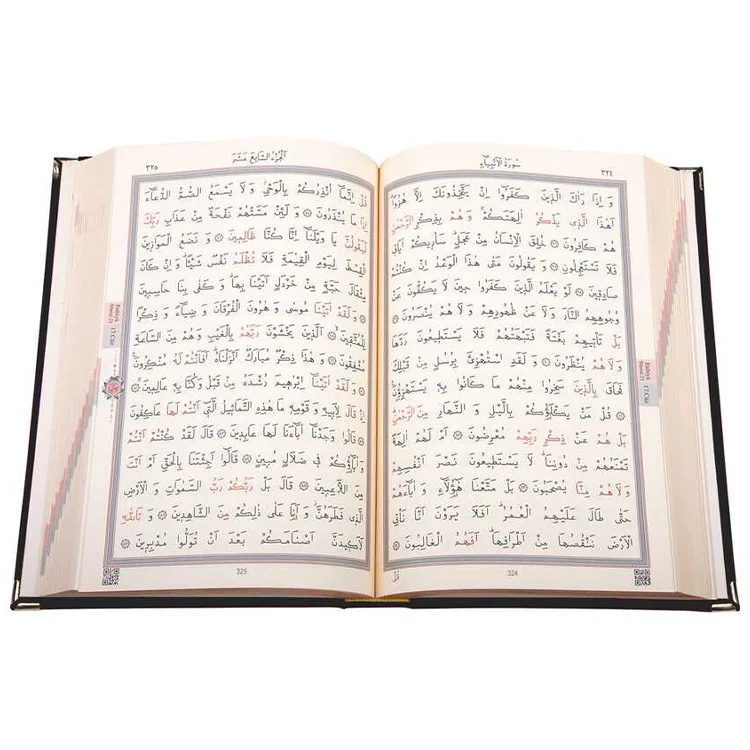 سُورَةُ الْاَنْبِيَاءِ ٣٢٤
وَ اِذَا رَاٰكَ الَّذِينَ كَفَرُٓوا اِنْ يَتَّخِذُونَكَ اِلَّا هُزُوًا
اَهٰذَا الَّذِى يَذْكُرُ اٰلِهَتَكُمْ وَ هُمْ بِذِكْرِ الرَّحْمٰنِ
هُمْ كَافِرُونَ ۝ خُلِقَ الْاِنْسَانُ مِنْ عَجَلٍ سَاُرِيكُمْ اٰيَاتِى
فَلَا تَسْتَعْجِلُونِ ۝ وَ يَقُولُونَ مَتٰى هٰذَا الْوَعْدُ اِنْ كُنْتُمْ
صَادِقِينَ ۝ لَوْ يَعْلَمُ الَّذِينَ كَفَرُوا حِينَ لَا يَكُفُّونَ عَنْ
وُجُوهِهِمُ النَّارَ وَ لَا عَنْ ظُهُورِهِمْ وَ لَا هُمْ يُنْصَرُونَ ۝
بَلْ تَاْتِيهِمْ بَغْتَةً فَتَبْهَتُهُمْ فَلَا يَسْتَطِيعُونَ رَدَّهَا
وَ لَا هُمْ يُنْظَرُونَ ۝ وَ لَقَدِ اسْتُهْزِئَ بِرُسُلٍ مِنْ قَبْلِكَ
فَحَاقَ بِالَّذِينَ سَخِرُوا مِنْهُمْ مَا كَانُوا بِهِ يَسْتَهْزِؤُنَ
۝ قُلْ مَنْ يَكْلَؤُكُمْ بِالَّيْلِ وَ النَّهَارِ مِنَ الرَّحْمٰنِ
بَلْ هُمْ عَنْ ذِكْرِ رَبِّهِمْ مُعْرِضُونَ ۝ اَمْ لَهُمْ اٰلِهَةٌ
تَمْنَعُهُمْ مِنْ دُونِنَا لَا يَسْتَطِيعُونَ نَصْرَ اَنْفُسِهِمْ
وَ لَا هُمْ مِنَّا يُصْحَبُونَ ۝ بَلْ مَتَّعْنَا هٰٓؤُلَٓاءِ وَ اٰبَٓاءَهُمْ
حَتّٰى طَالَ عَلَيْهِمُ الْعُمُرُ اَفَلَا يَرَوْنَ اَنَّا نَاْتِى
الْاَرْضَ نَنْقُصُهَا مِنْ اَطْرَافِهَا اَفَهُمُ الْغَالِبُونَ ۝
قُلْ
324
Enbiyâ
Sûresi 21
17.Cüz
اَلْجُزْءُ السَّابِعَ عَشَرَ ٣٢٥
قُلْ اِنَّمَٓا اُنْذِرُكُمْ بِالْوَحْىِ وَ لَا يَسْمَعُ الصُّمُّ الدُّعَٓاءَ
اِذَا مَا يُنْذَرُونَ ۝ وَ لَئِنْ مَسَّتْهُمْ نَفْحَةٌ مِنْ عَذَابِ رَبِّكَ
لَيَقُولُنَّ يَا وَيْلَنَٓا اِنَّا كُنَّا ظَالِمِينَ ۝ وَ نَضَعُ الْمَوَازِينَ
الْقِسْطَ لِيَوْمِ الْقِيٰمَةِ فَلَا تُظْلَمُ نَفْسٌ شَيْئًا وَ اِنْ كَانَ
مِثْقَالَ حَبَّةٍ مِنْ خَرْدَلٍ اَتَيْنَا بِهَا وَ كَفٰى بِنَا حَاسِبِينَ
۝ وَ لَقَدْ اٰتَيْنَا مُوسٰى وَ هٰرُونَ الْفُرْقَانَ وَ ضِيَٓاءً وَ ذِكْرًا
لِلْمُتَّقِينَ ۝ اَلَّذِينَ يَخْشَوْنَ رَبَّهُمْ بِالْغَيْبِ وَ هُمْ مِنَ السَّاعَةِ
مُشْفِقُونَ ۝ وَ هٰذَا ذِكْرٌ مُبَارَكٌ اَنْزَلْنَاهُ اَفَاَنْتُمْ لَهُ مُنْكِرُونَ
۝ وَ لَقَدْ اٰتَيْنَٓا اِبْرٰهِيمَ رُشْدَهُ مِنْ قَبْلُ وَ كُنَّا بِهِ عَالِمِينَ ۝
اِذْ قَالَ لِاَبِيهِ وَ قَوْمِهِ مَا هٰذِهِ التَّمَاثِيلُ الَّتِٓى اَنْتُمْ لَهَا عَاكِفُونَ
۝ قَالُوا وَجَدْنَٓا اٰبَٓاءَنَا لَهَا عَابِدِينَ ۝ قَالَ لَقَدْ كُنْتُمْ اَنْتُمْ
وَ اٰبَٓاؤُكُمْ فِى ضَلَالٍ مُبِينٍ ۝ قَالُٓوا اَجِئْتَنَا بِالْحَقِّ اَمْ اَنْتَ
مِنَ اللَّاعِبِينَ ۝ قَالَ بَلْ رَبُّكُمْ رَبُّ السَّمٰوَاتِ وَ الْاَرْضِ
الَّذِى فَطَرَهُنَّ وَ اَنَا عَلٰى ذٰلِكُمْ مِنَ الشَّاهِدِينَ ۝ وَ تَاللّٰهِ
لَاَكِيدَنَّ اَصْنَامَكُمْ بَعْدَ اَنْ تُوَلُّوا مُدْبِرِينَ ۝
325
Enbiyâ
Sûresi 21
17.Cüz